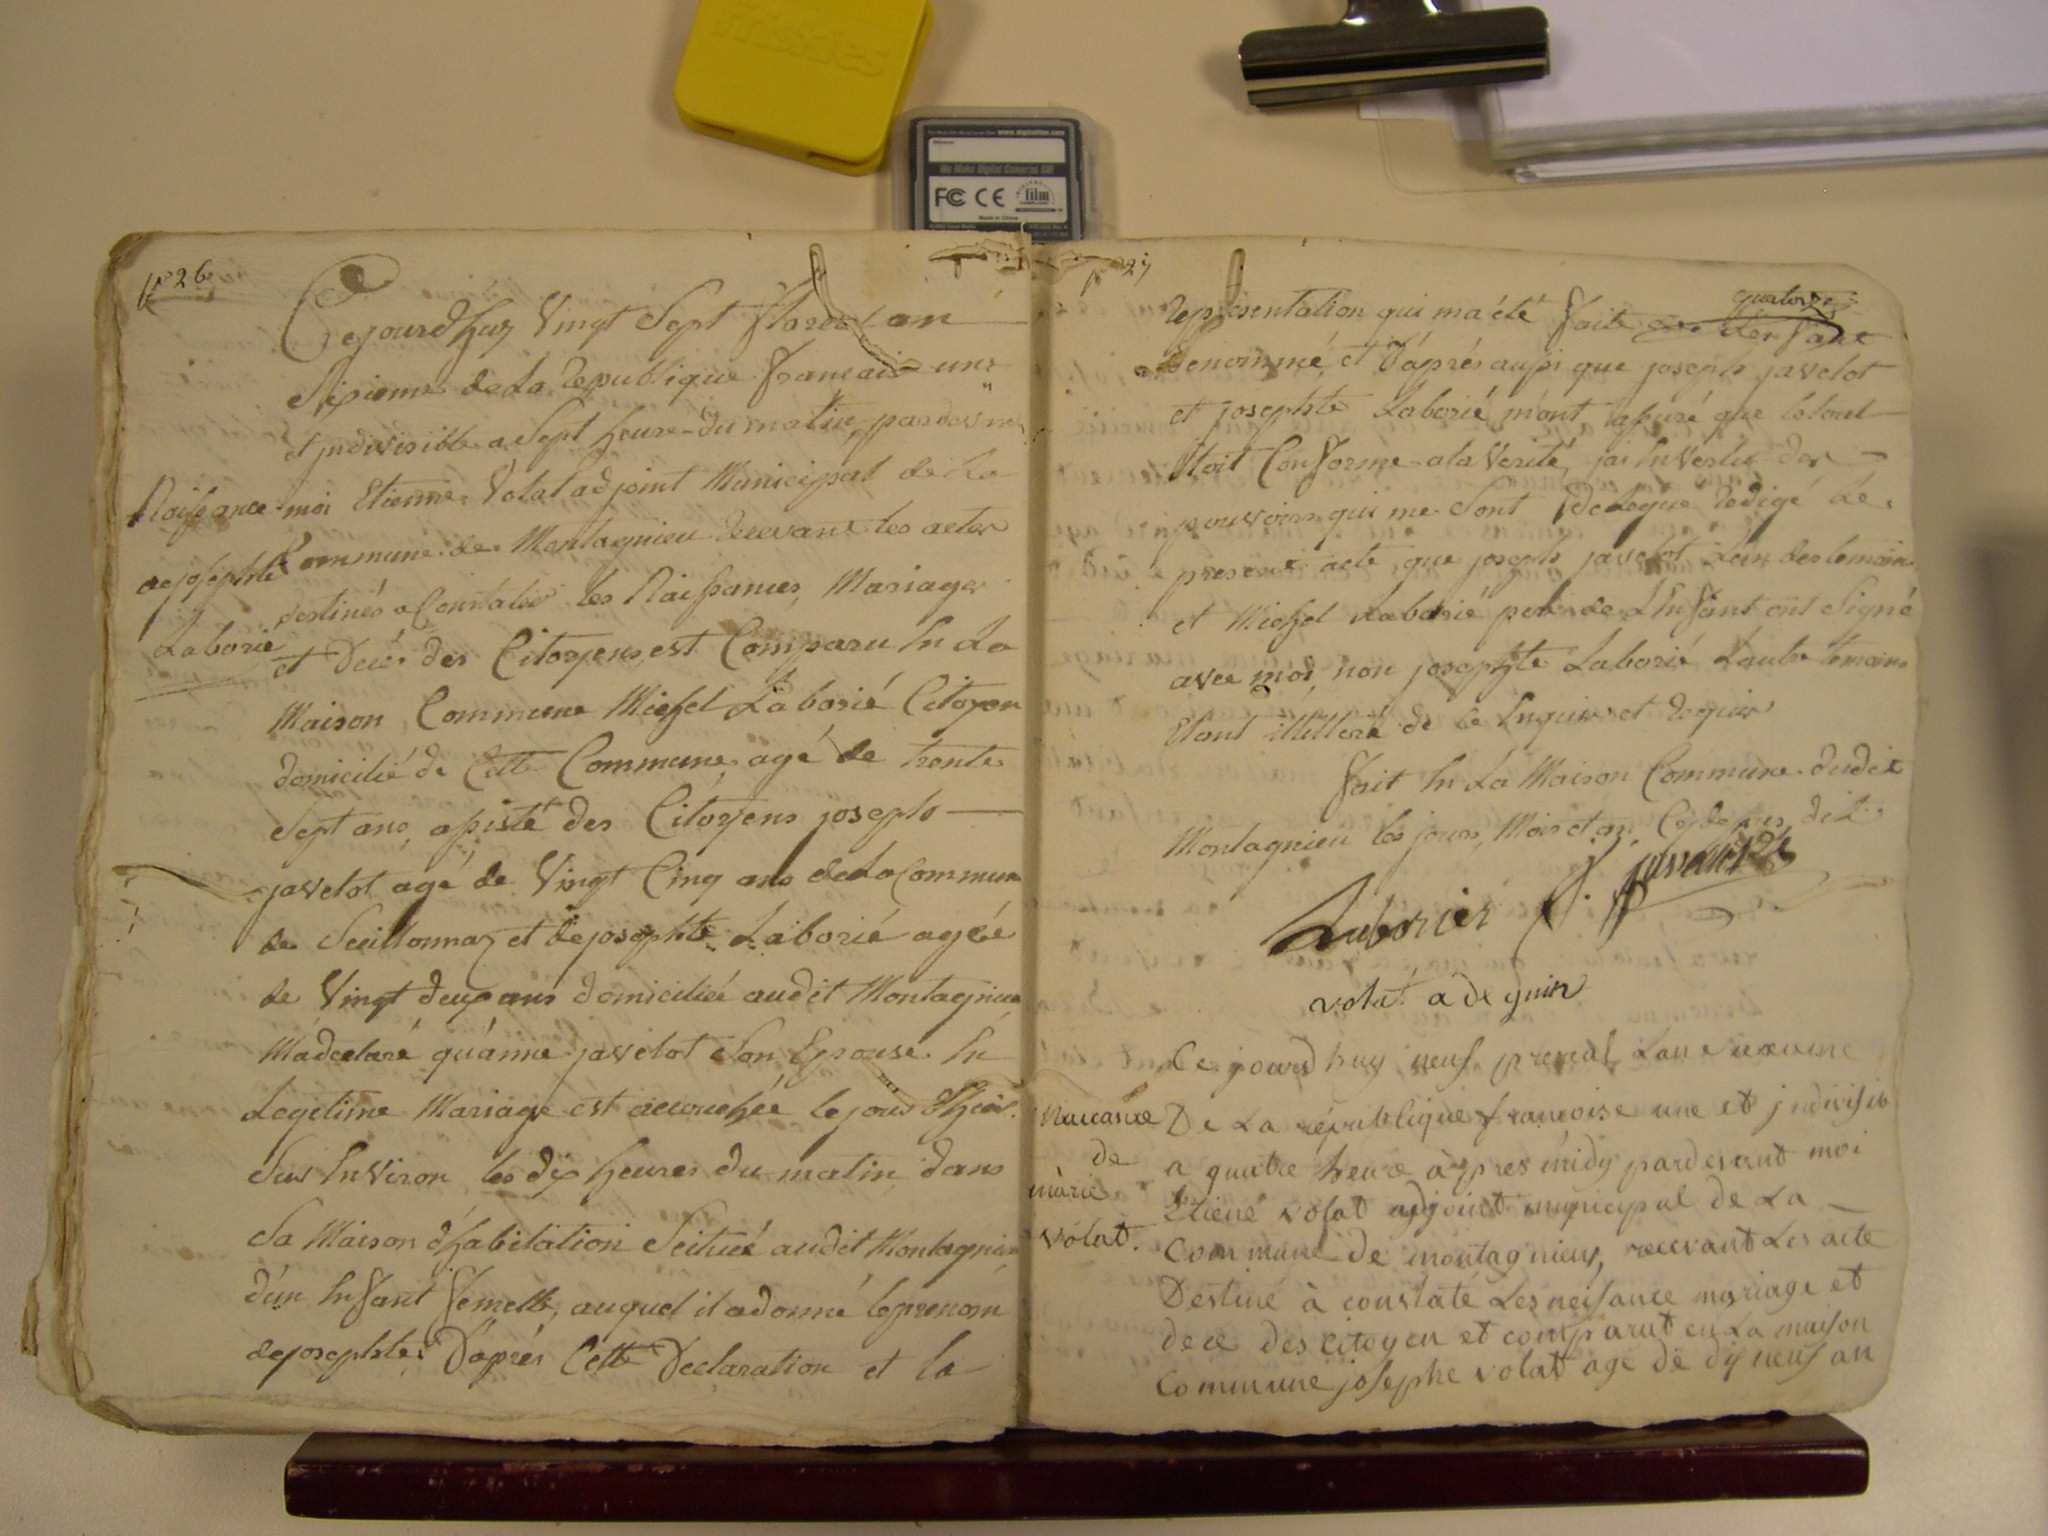 Friskies
www.digitalfilm.com
We Make Digital Cameras Sell
FC CE film
Made in China
p 26
Cejourdhuy Vingt Sept floreal an
Sixieme de La Republique francaise une
et jndivisible a Sept heure du matin, pardevant
Naissance
de josephte
Laborie
moi Etienne Volat adjoint Municipal de La
Commune de Montagnieu Recevant les actes
destinés a Constater les Naissances, Mariages
et Decés des Citoyens, est Comparu En La
Maison Commune Michel Laborié Citoyen
domicilié de Cette Commune agé de trente
Sept ans, assisté des Citoyens joseph
javelot agé de Vingt Cinq ans de La Commune
de Seillonnaz et de josephte Laborié agée
de Vingt deux ans domiciliée audit Montagnieu
Madeclaré qu'anne javelot Son Epouse En
Legitime Mariage est accouchée le jour d'hier
Sur Environ les dix heures du matin dans
Sa Maison d'habitation Scituée audit Montagnieu
d'un Enfant femelle, auquel il a donné le prenom
de josephte. D'aprés Cette Declaration et la
p 27
quatorze
Représentation qui ma été faite de L'enfant
denommé, et d'aprés aussi que joseph javelot
et josephte Laborié m'ont assuré que le tout
Etoit Conforme a la Verité, jai En Vertu des
pouvoirs qui me Sont Delegué Redigé Le
present acte que joseph javelot L'un des temoins
et Michel Laborié pere de L'Enfant ont Signé
avec moi, non josephte Laborié L'autre temoins
Etant illitteré de le Enquis et Requis
Fait En La Maison Commune dudit
Montagnieu les jours, Mois et an, Cydessus dit
Laborier J. javelot
volat adeguin
Ce jourdhuy neuf prerial Lan sixeume
Naicance
de
màrie
volat.
De La républiqué francoise une et jndivisib
a quatre heure àpres midy pardevant moi
Etiené volat adjoint municipal de La
Commune de montagnieu, recevant Les acte
Destiné à constaté Les neisance mariage et
dece des citoyen et comparut en La maison
Commune josephe volat age de dix neuf an